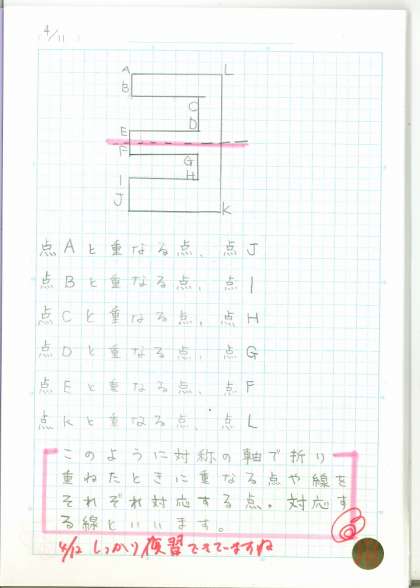 4/11
A L
B
C
D
E
F
G
H
I
J
K
点Aと重なる点、点J
点Bと重なる点、点I
点Cと重なる点、点H
点Dと重なる点、点G
点Eと重なる点、点F
点Kと重なる点、点L
このように対称の軸で折り
重ねたときに重なる点や線を
それぞれ対応する点。対応す
る線といいます。
4/12 しっかり復習できていますね